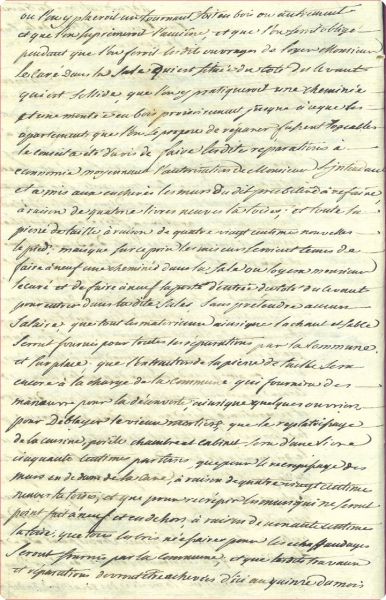 ou l'on y placeroit un tournant soit en bois ou autrement
et que l'on supprimeroit l'ancien, et que l'on seroit obligé
pendant que l'on feroit les dits ouvrages de loger Monsieur
le Curé dans la Sale qui est située du coté du levant
qui est solide, que l'on y pratiqueroit une cheminée
et une montée en bois provisoirement jusque à ce que les
apartements que l'on se propose de reparer fussent logeables
le conseil a été d'avis de faire les dites reparations à
economie moyennant l'autorisation de Monsieur
et a mis aux encheres les murs du dit presbitere à refaire
à raison de quatre livres neuves la toise, et toute la
piere de taille à raison de quatre vingt centime nouvelles
le pied, mais que sur ce prix les macons seroient tenus de
faire à neuf une cheminée dans la Sale ou loger monsieur
le curé et de faire à neuf la porte d'entrée du coté du levant
pour entrer dans la dite Sales sans pretendre aucun
Salaire, que tout les materieaux ainsi que la chaux et sable
seront fournis pour toutes les reparations par la Commune
et sur place, que l'extraction de la piere de taille sera
encore à la charge de la Commune qui fournira des
manœuvre pour la decouverte ainsi que quelques ouvriers
pour deblayer le vieux mortier, que le replatissage
de la cuisine, poele chambre et cabinet sera d'une livre
cinquante centime par toise, que pour le recrepissage des
murs en dedans de la Cave, à raison de quatre vingt centime
neuves la toise, et que pour recrepir les murs qui ne seront
point fait à neuf et en dehors à raison de nonante centime
la toise, que tous les bois necessaires pour les echaffaudages
seront fournis par la Commune, et que les dits travaux
et reparations devront etre achevées d'ici au quinze du mois